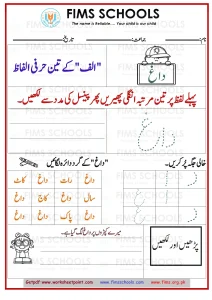 FIMS SCHOOLS
The name is Reliable.... Your child is our child
نام: جماعت: تاریخ:
"الف" کے تین حرفی الفاظ
داغ
پہلے لفظ پر تین مرتبہ انگلی پھیریں پھر پینسل کی مدد سے لکھیں۔
داغ
"داغ" کے گرد دائرہ لگائیں
خالی جگہ پُر کریں۔
داغ رات داغ کات
سال داغ کاج داغ
داغ پاک داغ
پڑھیں اور لکھیں
میرے کپڑوں پر داغ لگ گیا ہے۔
Get pdf www.worksheetpoint.com www.fimsschools.com www.fims.org.pk